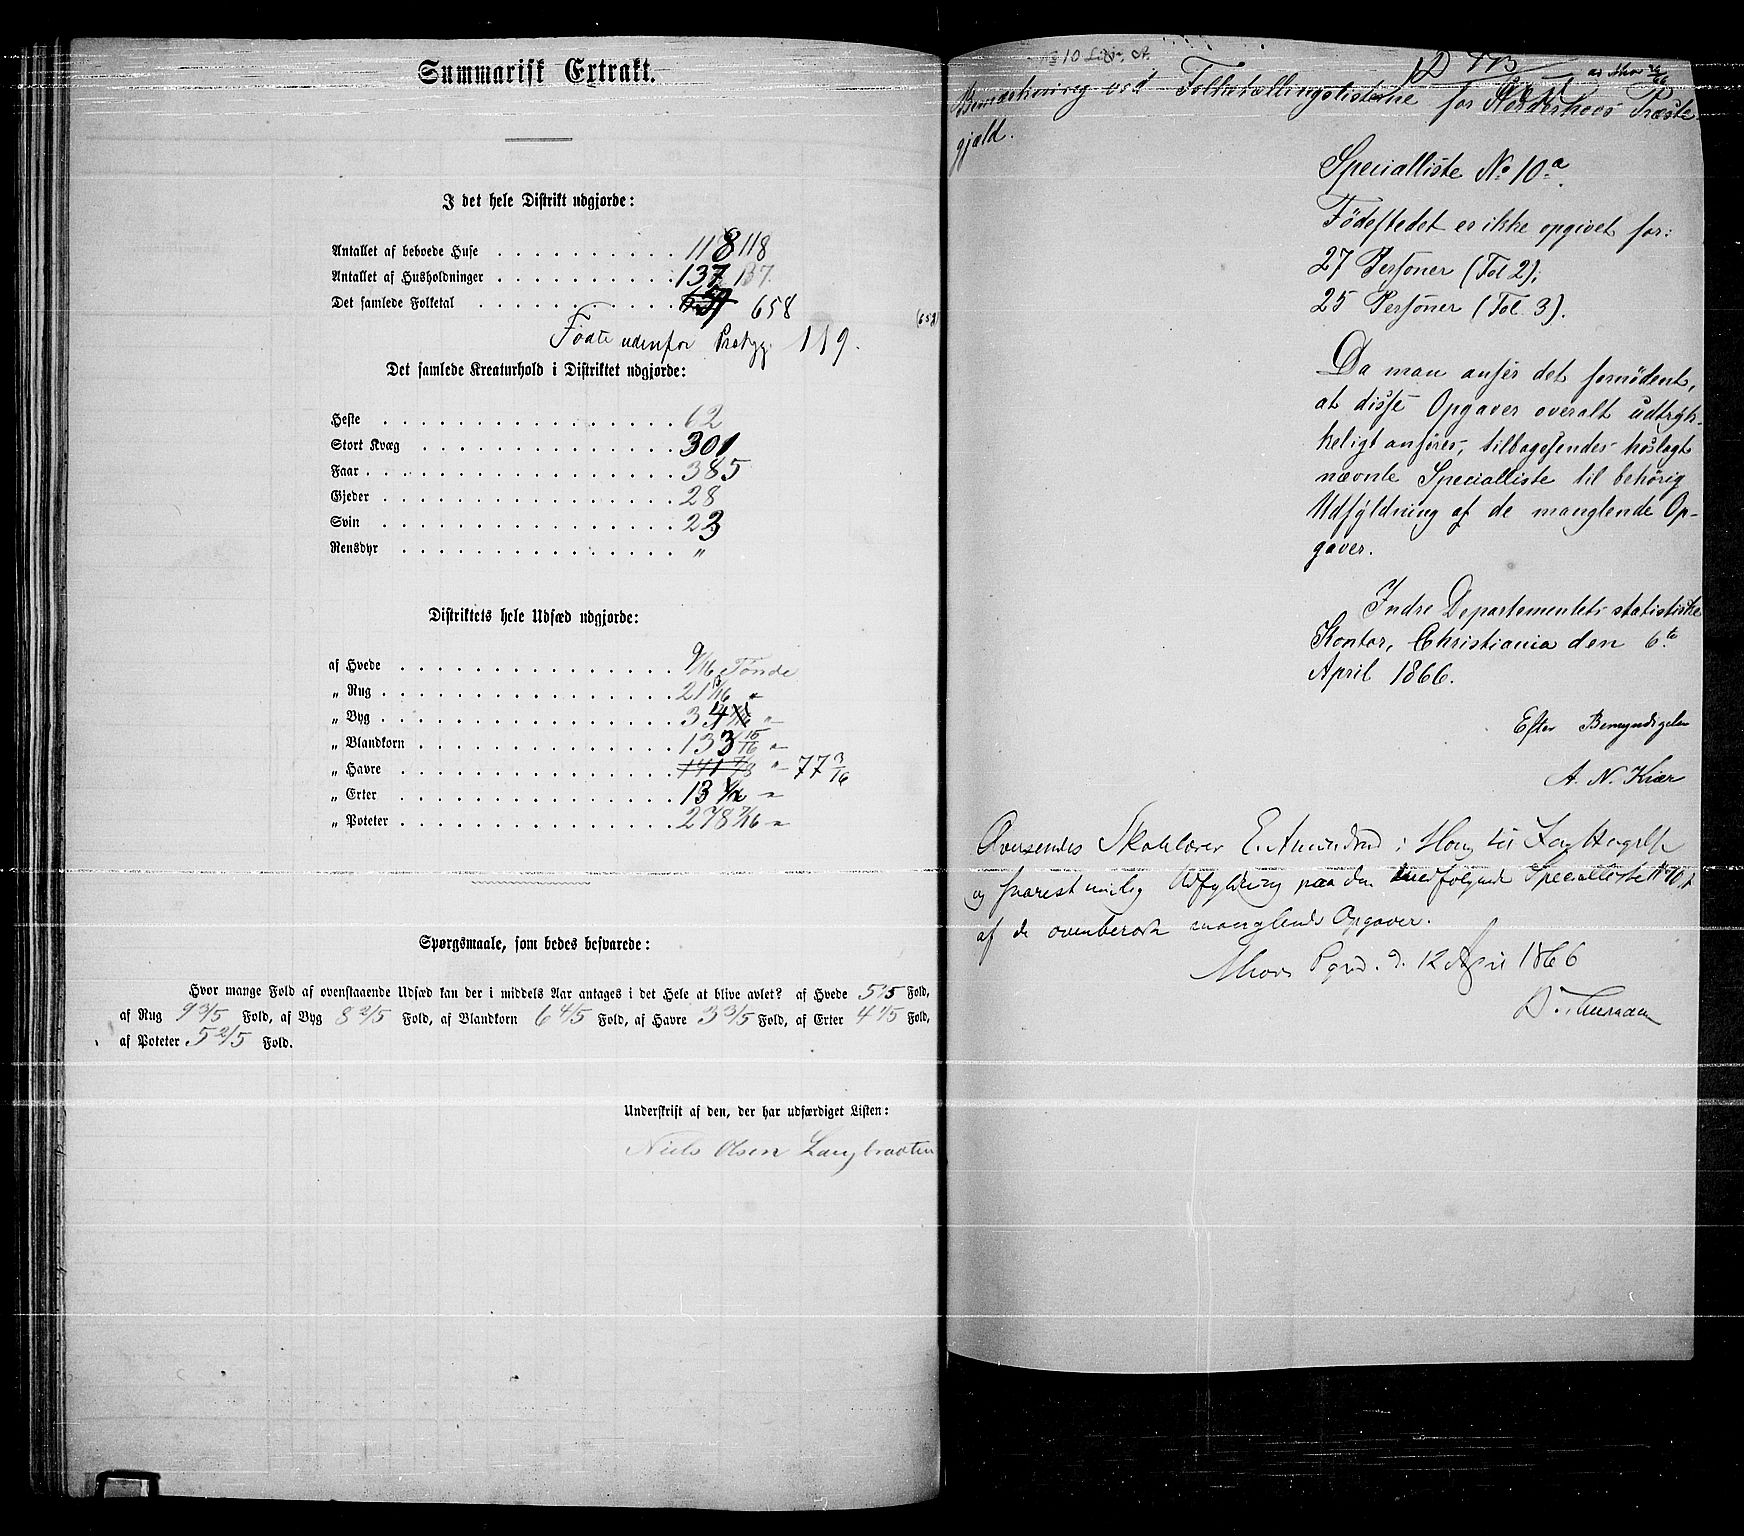 Summarisk Extrakt.
I det hele Distrikt udgjorde:
Antallet af beboede Huse 118 118
Antallet af Husholdninger 137 137
Det samlede Folketal 659 658
(658)
Fødte udenfor Prstgj. 119.
Det samlede Kreaturhold i Distriktet udgjorde:
Heste 62
Stort Kvæg 301
Faar 385
Gjeder 28
Svin 23
Rensdyr "
Distriktets hele Udsæd udgjorde:
af Hvede 9/16 Tønde
" Rug 21
" Byg 34
" Blandkorn 133 15/16 "
" Havre 77 3/16
" Erter 13
" Poteter 278 7/16 "
Spørgsmaale, som bedes besvarede:
Hvor mange Fold af ovenstaaende Udsæd kan der i middels Aar antages i det Hele at blive avlet? af Hvede Fold,
af Rug 9 3/5 Fold, af Byg 8 2/5 Fold, af Blandkorn 6 4/5 Fold, af Havre 3 3/5 Fold, af Erter 4 4/5 Fold,
af Poteter 5 2/5 Fold.
Underskrift af den, der har udfærdiget Listen:
Niels Olsen Langbraaten
No 10
Bemærkning ved Folketællingslisterne for Norderhovs Præste-
gjæld.
Specialliste No. 10a.
Fødestedet er ikke opgivet for:
27 Personer (Fol 2);
25 Personer (Fol. 3).
Da man anser det fornødent,
at disse Opgaver overalt udtryk-
keligt anføres, tilbagesendes hoslagt
nævnte Specialliste til behørig
Udfyldning af de manglende Op-
gaver.
Indre Departementets statistiske
Kontor, Christiania den 6te
April 1866.
Efter Bemyndigelse
A. N. Kiær
Oversendes Skolelærer E. Amundsen i Houg til
og snarest mulig Udfyldning paa den medfølgende Specialliste No 10
af de ovenberørte manglende Opgaver.
d. 12 April 1866